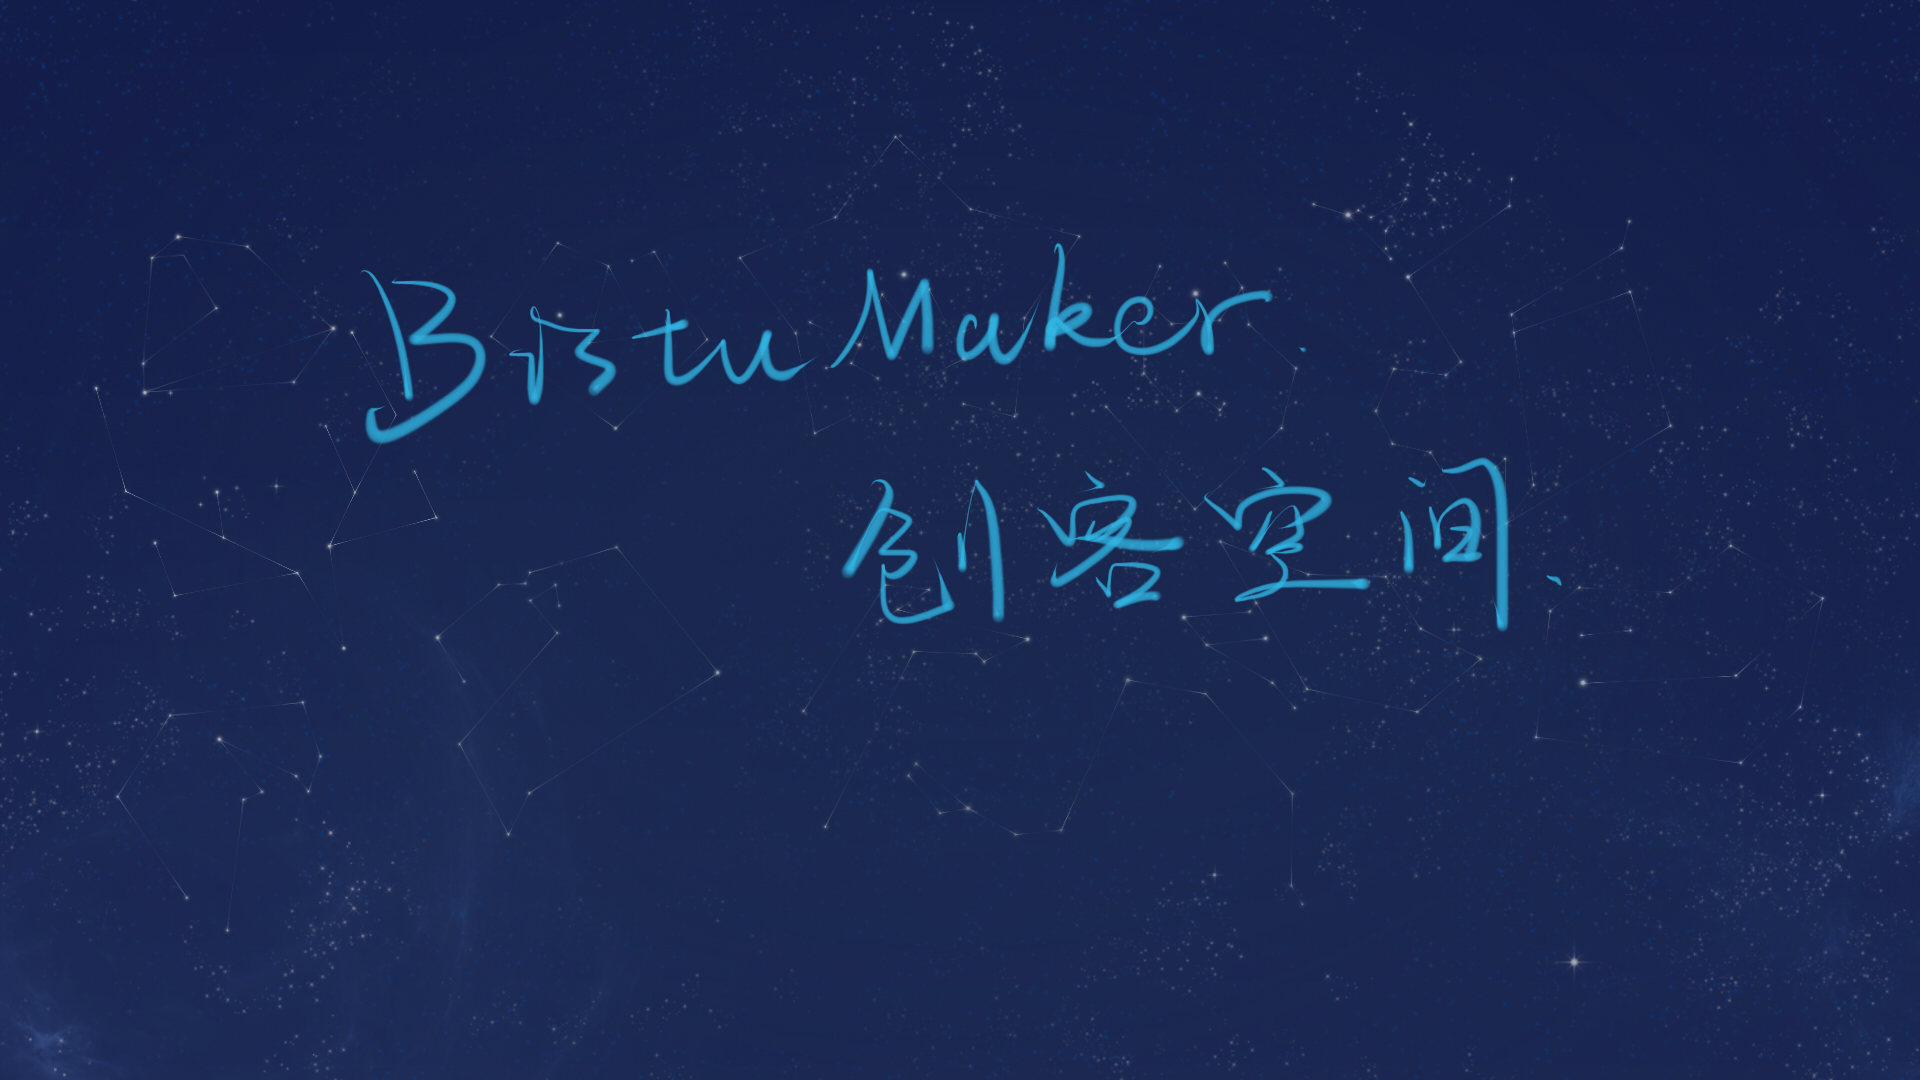 Bistu Maker.
创客空间.